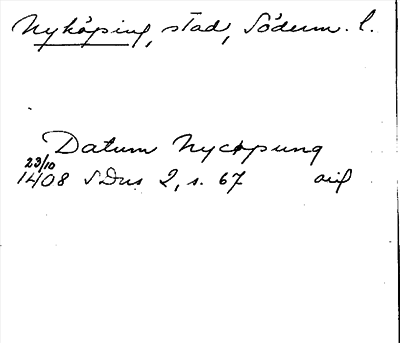 Nyköping, stad, Söderm. l.
Datum Nycopung
23/10
1408 SDns 2, s. 67 avl